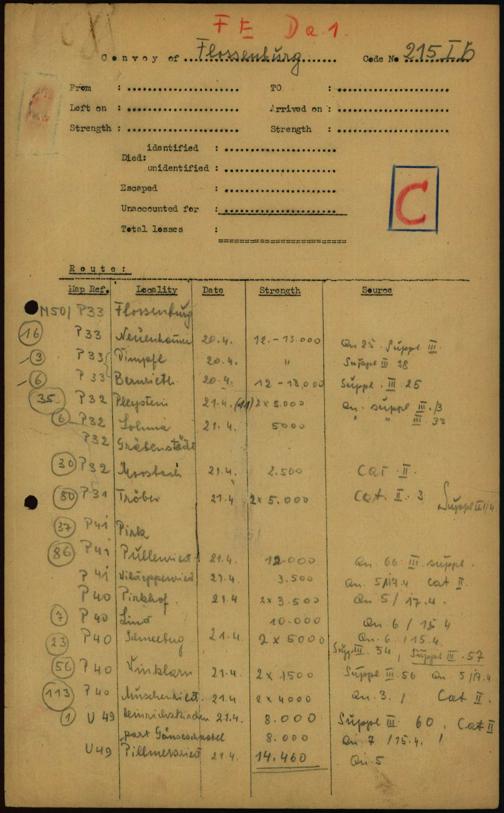 FE Da 1.
Convoy of Flossenburg Code No 215 I b
From : TO :
Left on : Arrived on :
Strength : Strength :
identified :
Died:
unidentified :
Escaped :
Unaccounted for :
Total losses :
C
Route:
Map Ref. Locality Date Strength Source
N50/ P33 Flossenburg
16 P33 Neuenhammer 20.4. 12.-13.000 Qn 25. Suppl III.
3 P33 20.4. " Suppl III 28
6 P33 20.4. 12-13,000 Suppl. III 25
35. P32 Pleystein 21.4. (11) 2x5.000 Qn. suppl III/3
6 P32 Lohma 21.4. 5000 " " III 33
P32
30 P32 Moosbach 21.4. 2.500 Cat. II.
50 P31 Tröbes 21.4 2x5.000 Cat. II. 3 Suppl III/4
37 P41 Pirk
86 P41 21.4. 12.000 Qn. 66. III. suppl.
P41 21.4. 3.500 Qn. 5/17.4 Cat II.
P40 Pirkhof. 21.4 2x3.500 Qn 5/ 17.4.
7 P40 Lind 10.000 Qn 6 / 15 4
23 P40 Schneeberg 21.4 2x5000 Qn. 6. /15.4.
Suppl III. 54, Suppl III. 57
56 P40 Winklarn 21.4. 2x1500 Suppl III. 56 Qn 5/17.4
113 P40 21.4. 2x4000 Qn. 3. / Cat II.
1 U49 21.4. 8.000 Suppl III 60. Cat II
part 8.000 Qn. 7 /15.4. /
U49 21.4. 14.460 Qn. 5